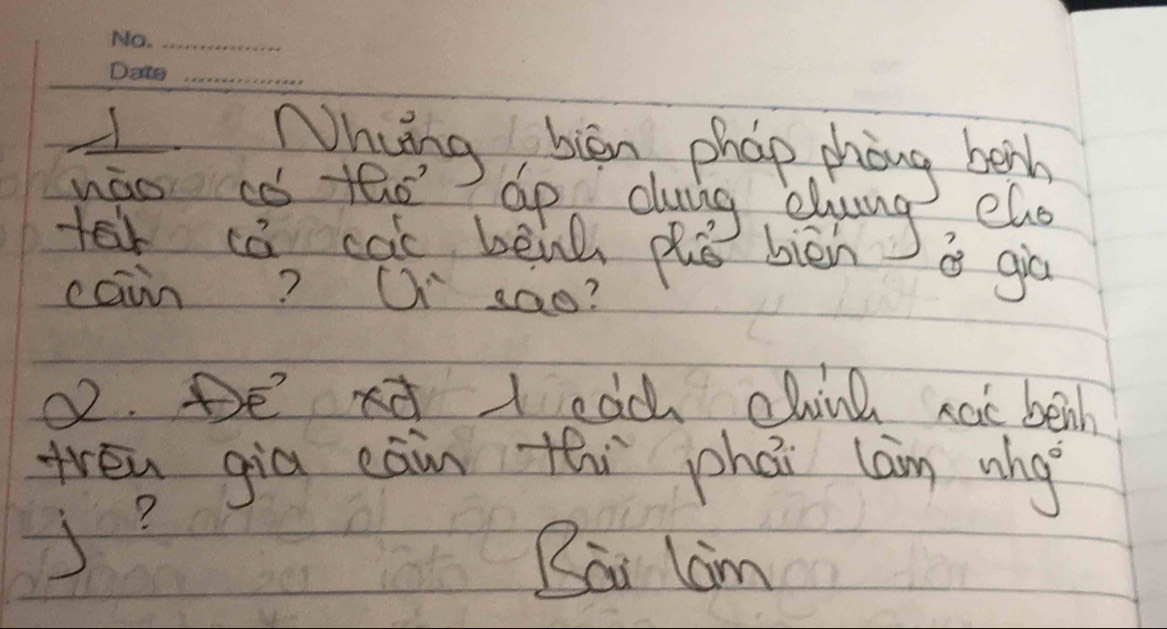 No. ..............
Date ..............
1. Những biện pháp phòng bệnh
nào có thể áp dụng chung cho
tất cả các bệnh phổ biến ở gia
cầm ? Vì sao?
2. Để xđ 1 cách chính xác bệnh
trên gia cầm thì phải làm nhg~
j ?
Bài làm